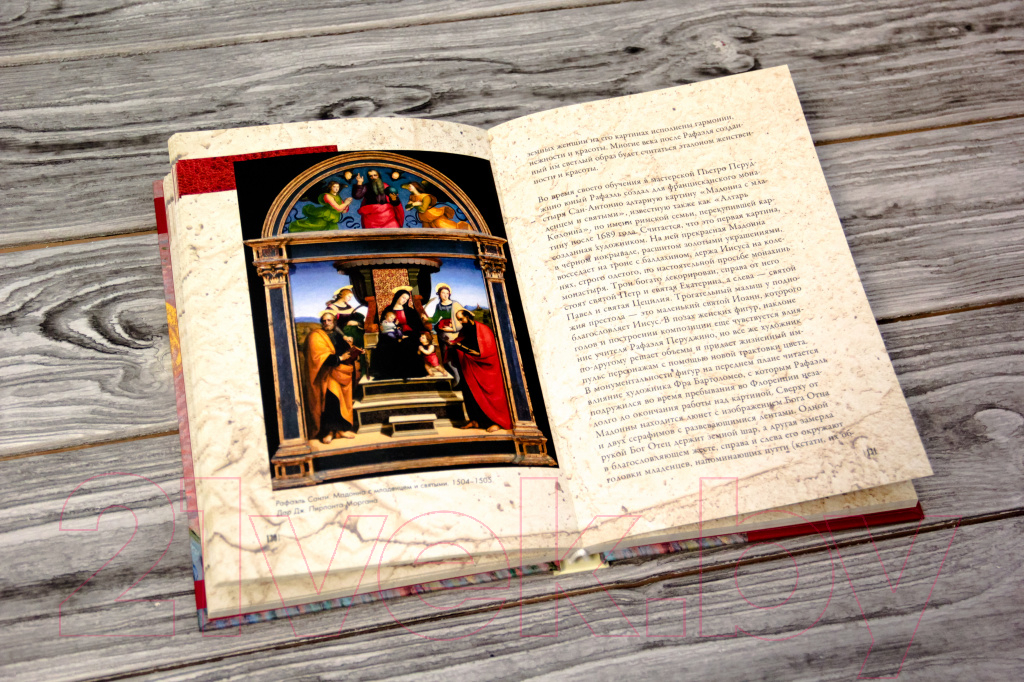 Рафаэль Санти. Мадонна с младенцем и святыми. 1504–1505.
Дар Дж. Пирпонта Моргана
земных женщин на его картинах исполнены гармонии,
нежности и красоты. Многие века после Рафаэля создан-
ный им светлый образ будет считаться эталоном женствен-
ности и красоты.
Во время своего обучения в мастерской Пьетро Перуд-
жино юный Рафаэль создал для францисканского мона-
стыря Сан-Антонио алтарную картину «Мадонна с мла-
денцем и святыми», известную также как «Алтарь
Колонна», по имени римской семьи, перекупившей кар-
тину после 1689 года. Считается, что это первая картина,
созданная художником. На ней прекрасная Мадонна
в чёрном покрывале, расшитом золотыми украшениями,
восседает на троне с балдахином, держа Иисуса на коле-
нях, строго одетого, по настоятельной просьбе монахинь
монастыря. Трон богато декорирован, справа от него
стоят святой Петр и святая Екатерина, а слева — святой
Павел и святая Цецилия. Трогательный малыш у подно-
жия престола — это маленький святой Иоанн, которого
благословляет Иисус. В позах женских фигур, наклоне
голов и построении композиции еще чувствуется влия-
ние учителя Рафаэля Перуджино, но все же художник
по-другому решает объемы и придает жизненный им-
пульс персонажам с помощью новой трактовки цвета.
В монументальности фигур на переднем плане читается
влияние художника Фра Бартоломео, с которым Рафаэль
подружился во время пребывания во Флоренции неза-
долго до окончания работы над картиной. Сверху от
Мадонны находится люнет с изображением Бога Отца
и двух серафимов с развевающимися лентами. Одной
рукой Бог Отец держит земной шар, а другая замерла
в благословляющем жесте, справа и слева его окружают
головки младенцев, напоминающих путти (кстати, их
121
21vek.by